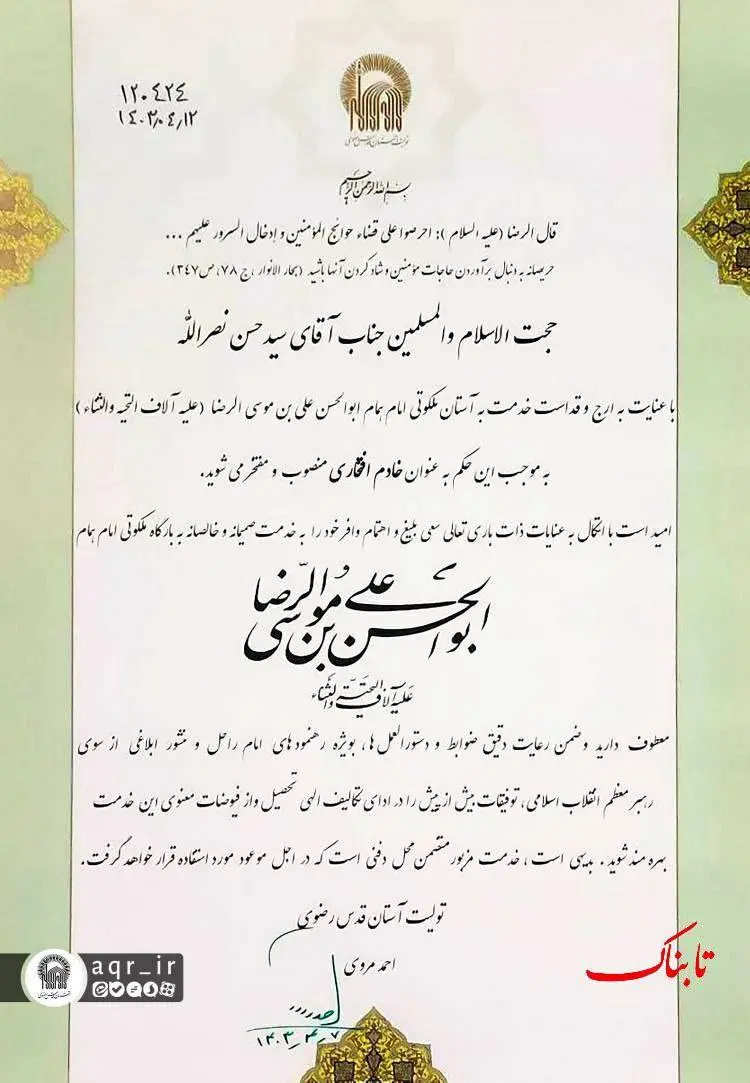 ۱۲۰۴۲۴
۱۴۰۳٫۰۴٫۱۲
بسم الله الرحمن الرحیم
قال الرضا (علیه السلام): احرصوا علی قضاء حوائج المؤمنین و إدخال السرور علیهم ...
حریصانه به دنبال برآوردن حاجات مؤمنین و شاد کردن آنها باشید (بحار الانوار ، ج ۷۸، ص ۳۴۷).
حجت الاسلام والمسلمین جناب آقای سید حسن نصرالله
با عنایت به ارج و قداست خدمت به آستان ملکوتی امام همام ابوالحسن علی بن موسی الرضا (علیه آلاف التحیه والثناء)
به موجب این حکم به عنوان خادم افتخاری منصوب و مفتخر می شوید.
امید است با اتکال به عنایات ذات باری تعالی سعی بلیغ و اهتمام وافر خود را به خدمت صمیمانه و خالصانه به بارگاه ملکوتی امام همام
ابوالحسن علی بن موسی الرضا
علیه آلاف التحیة والثناء
معطوف دارید وضمن رعایت دقیق ضوابط و دستورالعمل ها، بویژه رهنمودهای امام راحل و منشور ابلاغی از سوی
رهبر معظم انقلاب اسلامی، توفیقات بیش از پیش را در ادای تکالیف الهی تحصیل واز فیوضات معنوی این خدمت
بهره مند شوید. بدیهی است، خدمت مزبور متضمن محل دفنی است که در اجل موعود مورد استفاده قرار خواهد گرفت.
تولیت آستان قدس رضوی
احمد مروی
۱۴۰۳٫۴٫۷
aqr_ir
تابناک